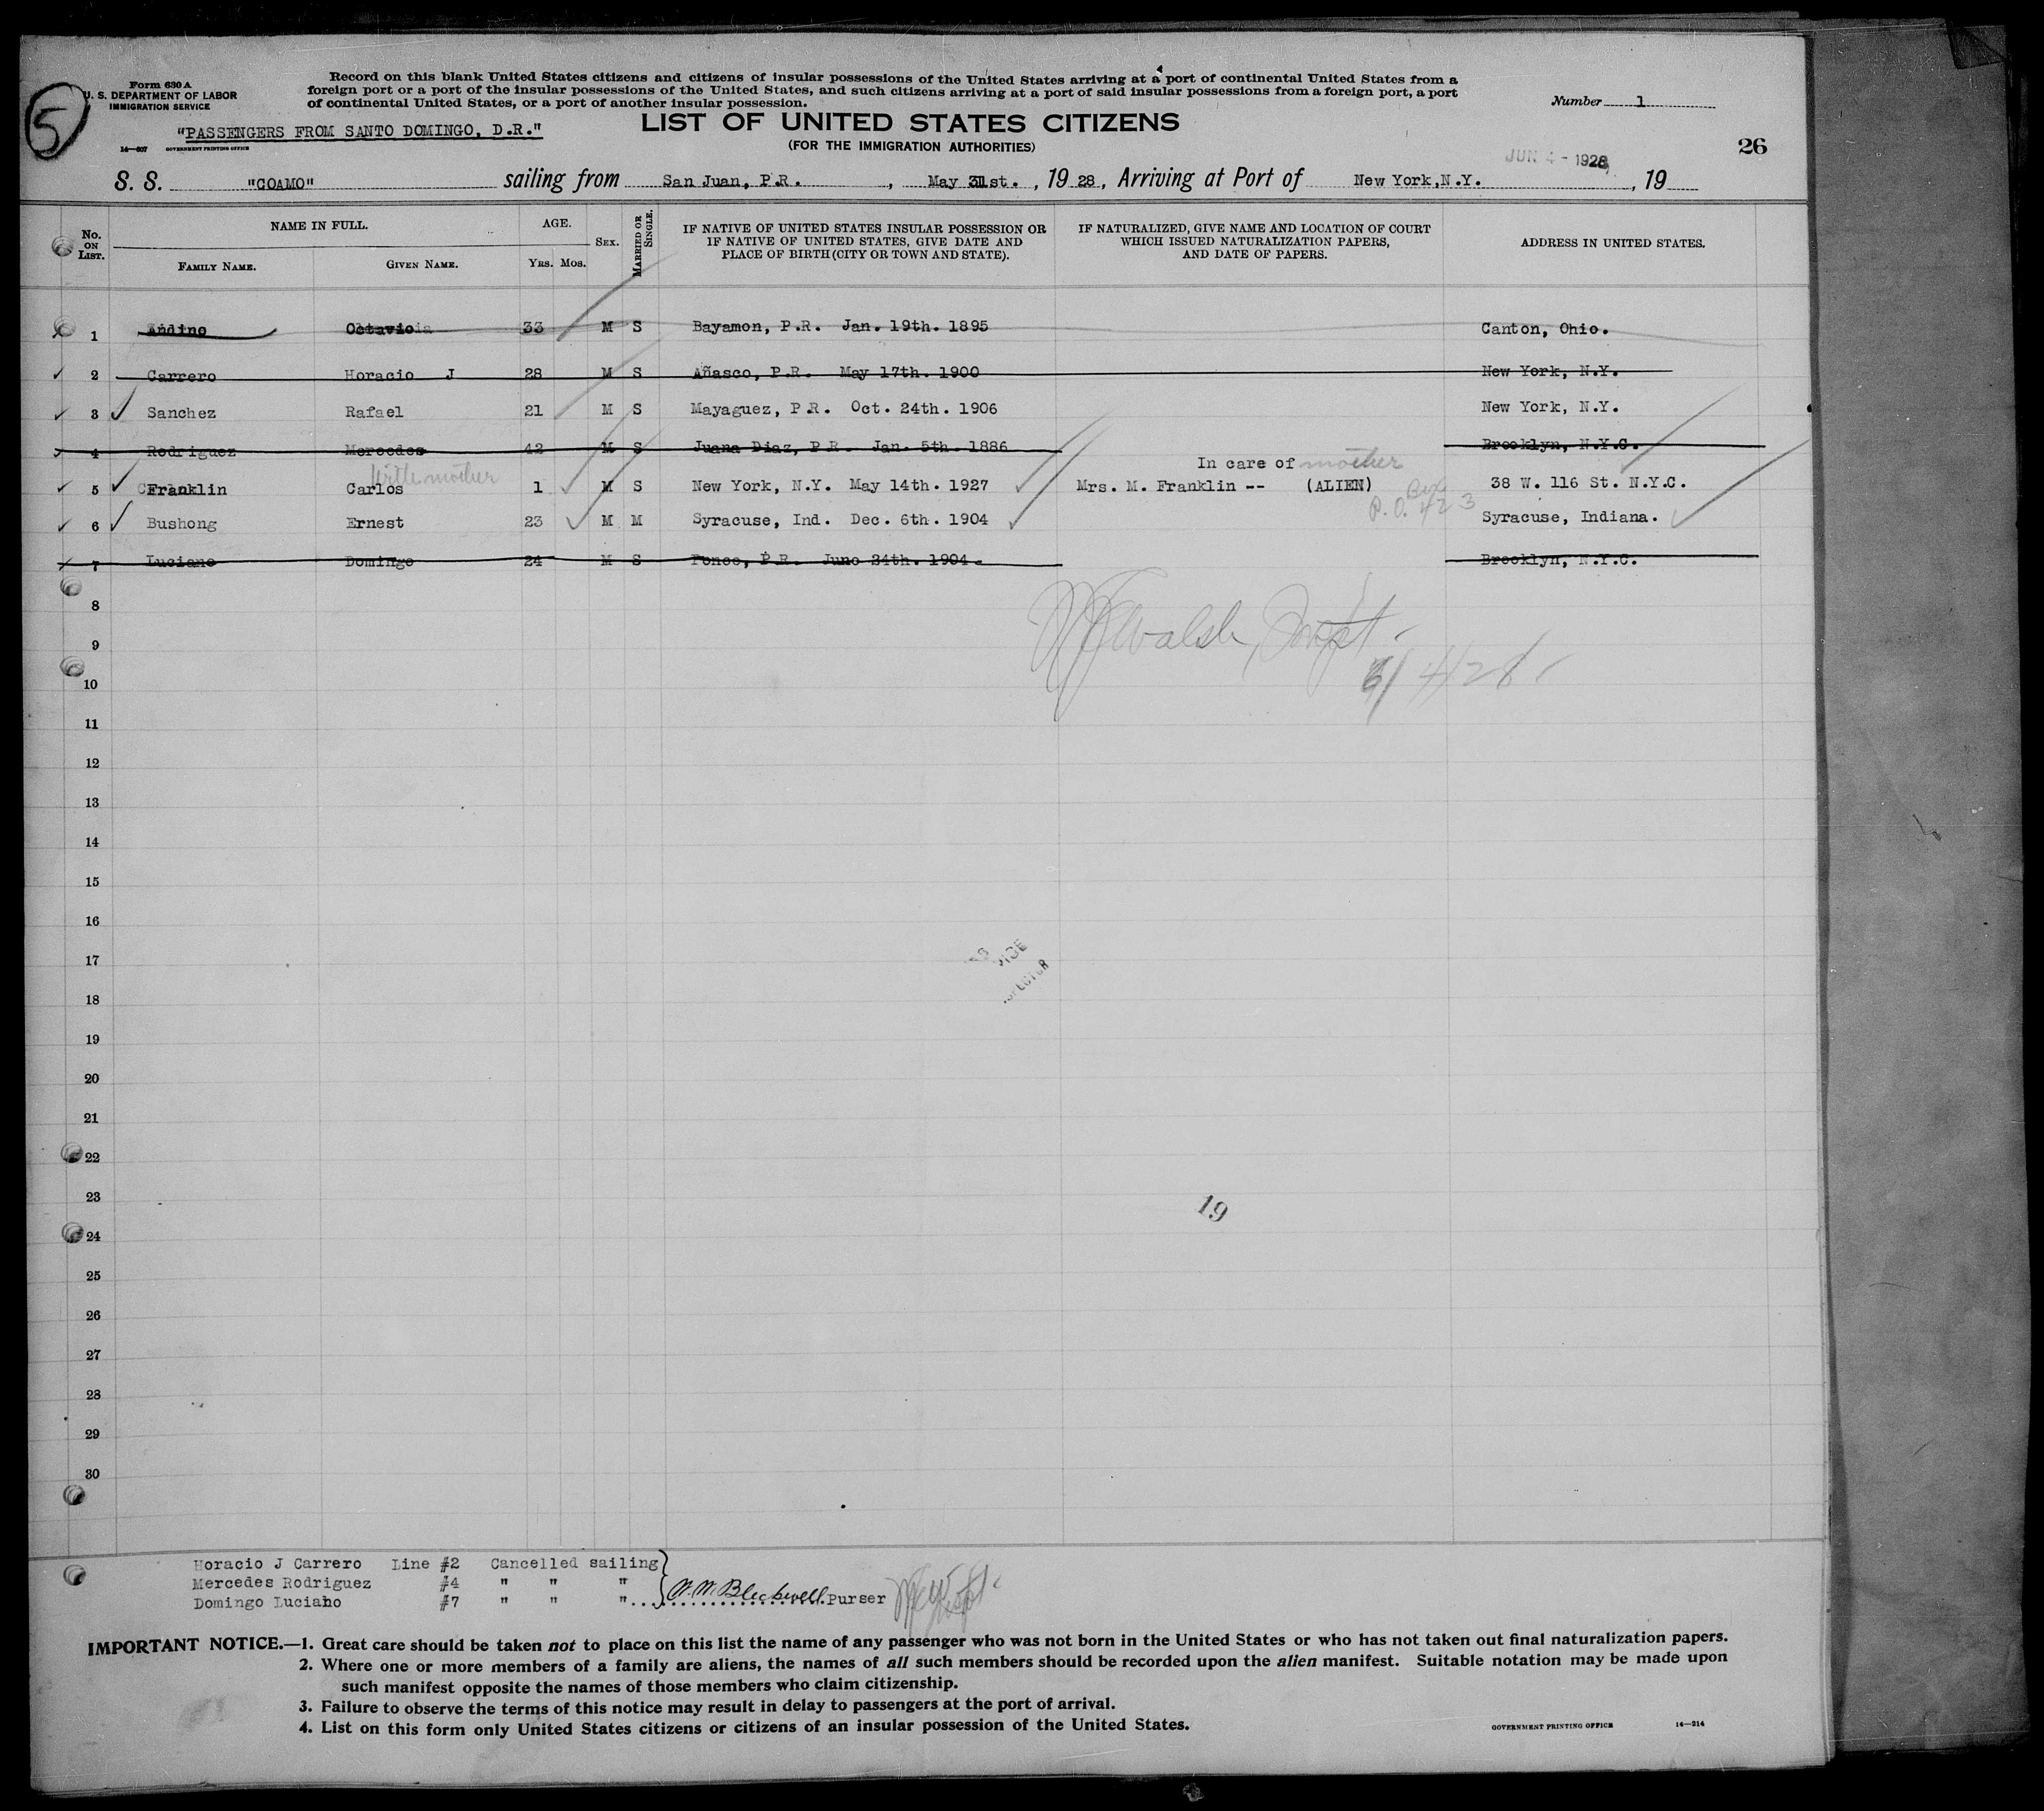 5
Form 630 A
U. S. DEPARTMENT OF LABOR
IMMIGRATION SERVICE
Record on this blank United States citizens and citizens of insular possessions of the United States arriving at a port of continental United States from a
foreign port or a port of the insular possessions of the United States, and such citizens arriving at a port of said insular possessions from a foreign port, a port
of continental United States, or a port of another insular possession.
Number 1
"PASSENGERS FROM SANTO DOMINGO, D.R."
14—607 GOVERNMENT PRINTING OFFICE
LIST OF UNITED STATES CITIZENS
(FOR THE IMMIGRATION AUTHORITIES)
JUN 4 - 1928
26
S. S. "COAMO" sailing from San Juan, P.R. , May 31st. , 19 28, Arriving at Port of New York, N.Y. , 19
No. ON LIST. NAME IN FULL. FAMILY NAME. GIVEN NAME. AGE. YRS. MOS. SEX. MARRIED OR SINGLE. IF NATIVE OF UNITED STATES INSULAR POSSESSION OR IF NATIVE OF UNITED STATES, GIVE DATE AND PLACE OF BIRTH (CITY OR TOWN AND STATE). IF NATURALIZED, GIVE NAME AND LOCATION OF COURT WHICH ISSUED NATURALIZATION PAPERS, AND DATE OF PAPERS. ADDRESS IN UNITED STATES.
1 Andino Octavio 33 M S Bayamon, P.R. Jan. 19th. 1895 Canton, Ohio.
2 Carrero Horacio J 28 M S Añasco, P.R. May 17th. 1900 New York, N.Y.
3 Sanchez Rafael 21 M S Mayaguez, P.R. Oct. 24th. 1906 New York, N.Y.
4 Rodriguez Mercedes 42 M S Juana Diaz, P.R. Jan. 5th. 1886 Brooklyn, N.Y.C.
With mother In care of mother
5 Franklin Carlos 1 M S New York, N.Y. May 14th. 1927 Mrs. M. Franklin -- (ALIEN) 38 W. 116 St. N.Y.C.
P.O. Box 423
6 Bushong Ernest 23 M M Syracuse, Ind. Dec. 6th. 1904 Syracuse, Indiana.
7 Luciano Domingo 24 M S Ponce, P.R. June 24th. 1904. Brooklyn, N.Y.C.
8
Walsh,
9
6/4/28
10
11
12
13
14
15
16
17
18
19
20
21
22
23
19
24
25
26
27
28
29
30
Horacio J Carrero Line #2 Cancelled sailing
Mercedes Rodriguez #4 " " "
Domingo Luciano #7 " " " W. W. Blackwell Purser
IMPORTANT NOTICE.—1. Great care should be taken not to place on this list the name of any passenger who was not born in the United States or who has not taken out final naturalization papers.
2. Where one or more members of a family are aliens, the names of all such members should be recorded upon the alien manifest. Suitable notation may be made upon
such manifest opposite the names of those members who claim citizenship.
3. Failure to observe the terms of this notice may result in delay to passengers at the port of arrival.
4. List on this form only United States citizens or citizens of an insular possession of the United States.
GOVERNMENT PRINTING OFFICE 14—214